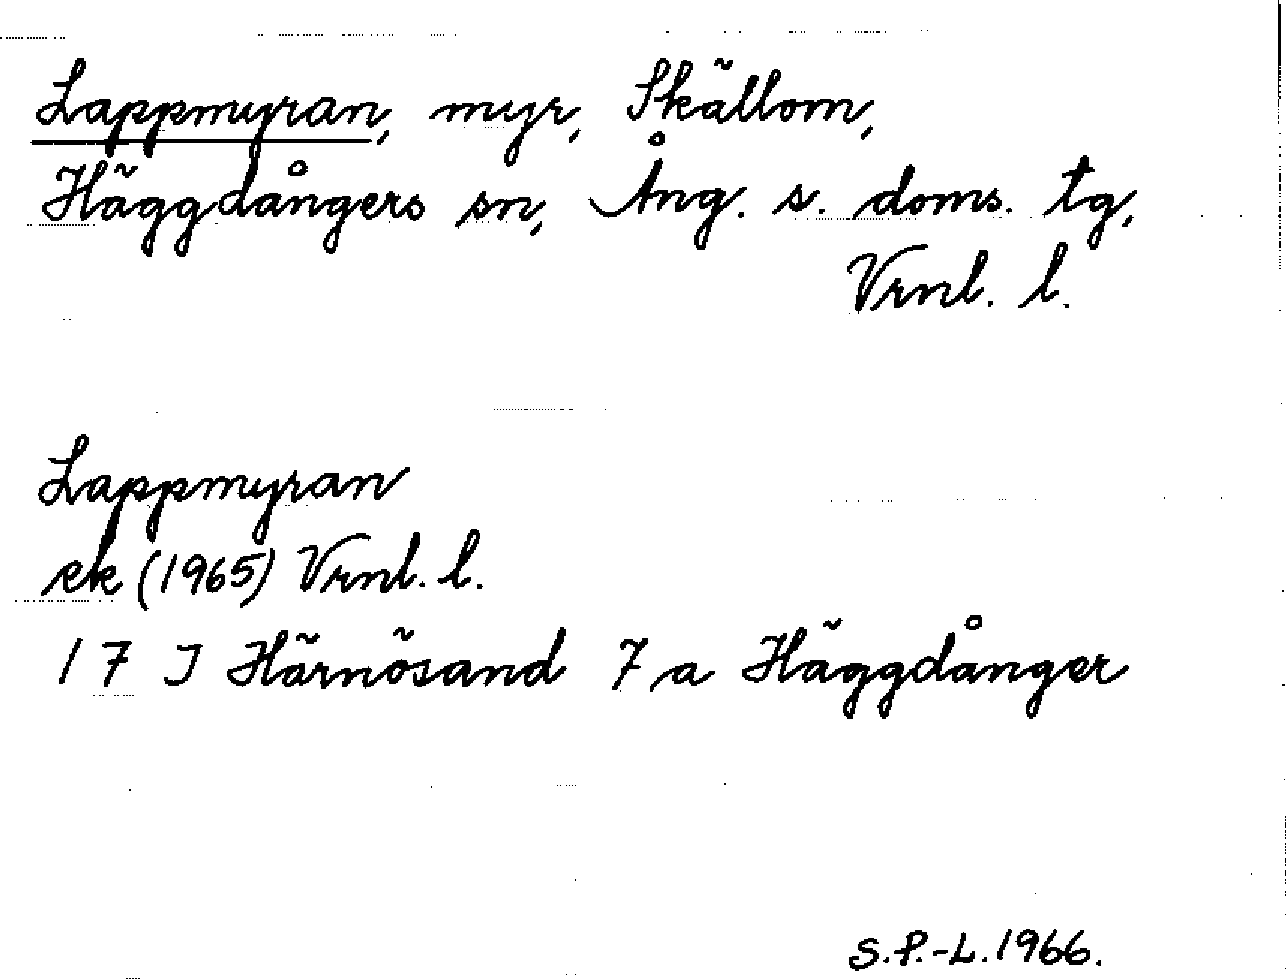 Lappmyran, myr, Skällom,
Häggdångers sn, Ång. s. doms. tg,
Vrnl. l.
Lappmyran
ek (1965) Vrnl. l.
17 I Härnösand 7 a Häggdånger
S.P.-L. 1966.